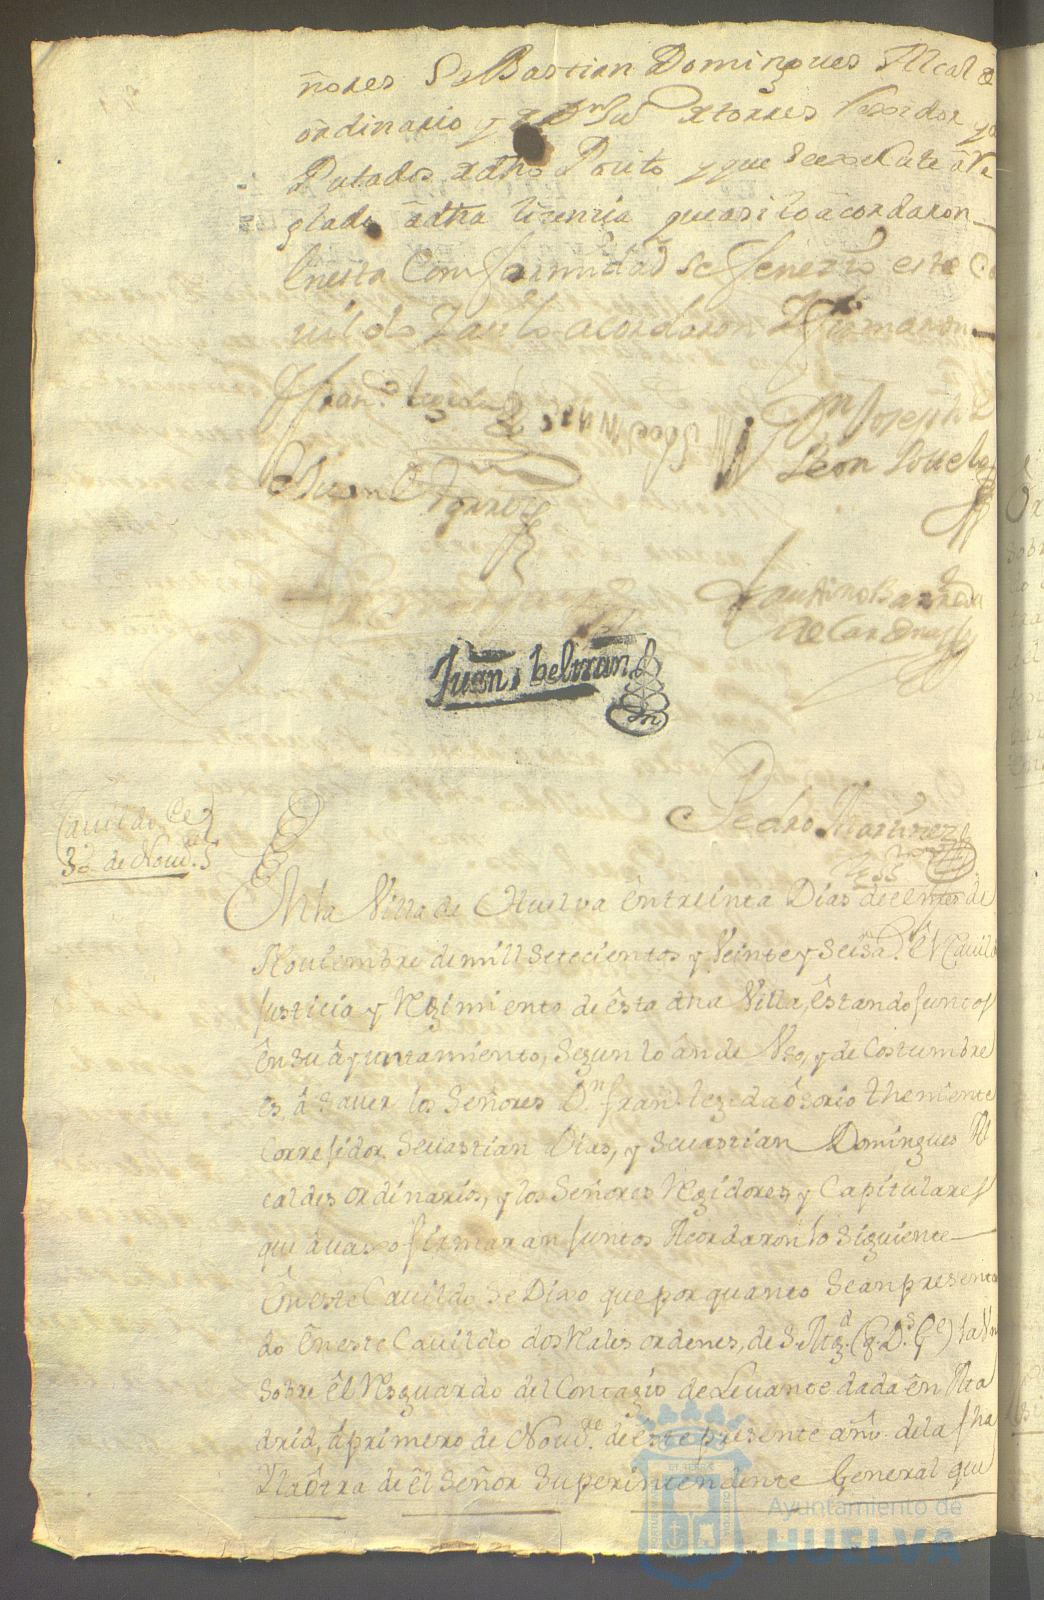 ñores Sebastian Domingues Alcalde
ordinario y Dn Juº de torres Rexidor y
Putados de dho Posito y que se execute are
glado a dha licencia que asi lo acordaron
Enesta Comformidad se fenezio este Ca
uildo y asi lo acordaron y firmaron
Franco Lezeda
Joseph
Leon
Juan de Torres
Faustino Barreda
de Cardenas
Juan, beltran
Pedro Martinez
Cauildo de
30 de Nouie.
En la Villa de Huelva en treinta Dias de el mes de
Nouiembre de mill setecientos y Veinte y seis a.s el Cauildo
Justicia y Reximiento de esta dha Villa, estando Juntos
en su ayuntamiento, segun lo an de Vso, y de Costumbre
es a sauer los señores D.n fran.co lezeda osorio theniente
Corregidor, Seuastian Dias, y Seuastian Domingues Al
caldes ordinarios, y los señores Regidores y Capitulares
qui auaxo firmaran Juntos Acordaron lo siguiente
En este Cauildo se Dixo que por quanto se an presenta
do en este Cauildo dos Reales ordenes, de S. Mg.d (q. D.s G.e) la Vna
sobre el Resguardo del Contagio de Leuante dada en Ma
drid, a primero de Nou.re de este presente año de la fha
Y la otra de el señor superintendente General que
Ayuntamiento de
HUELVA